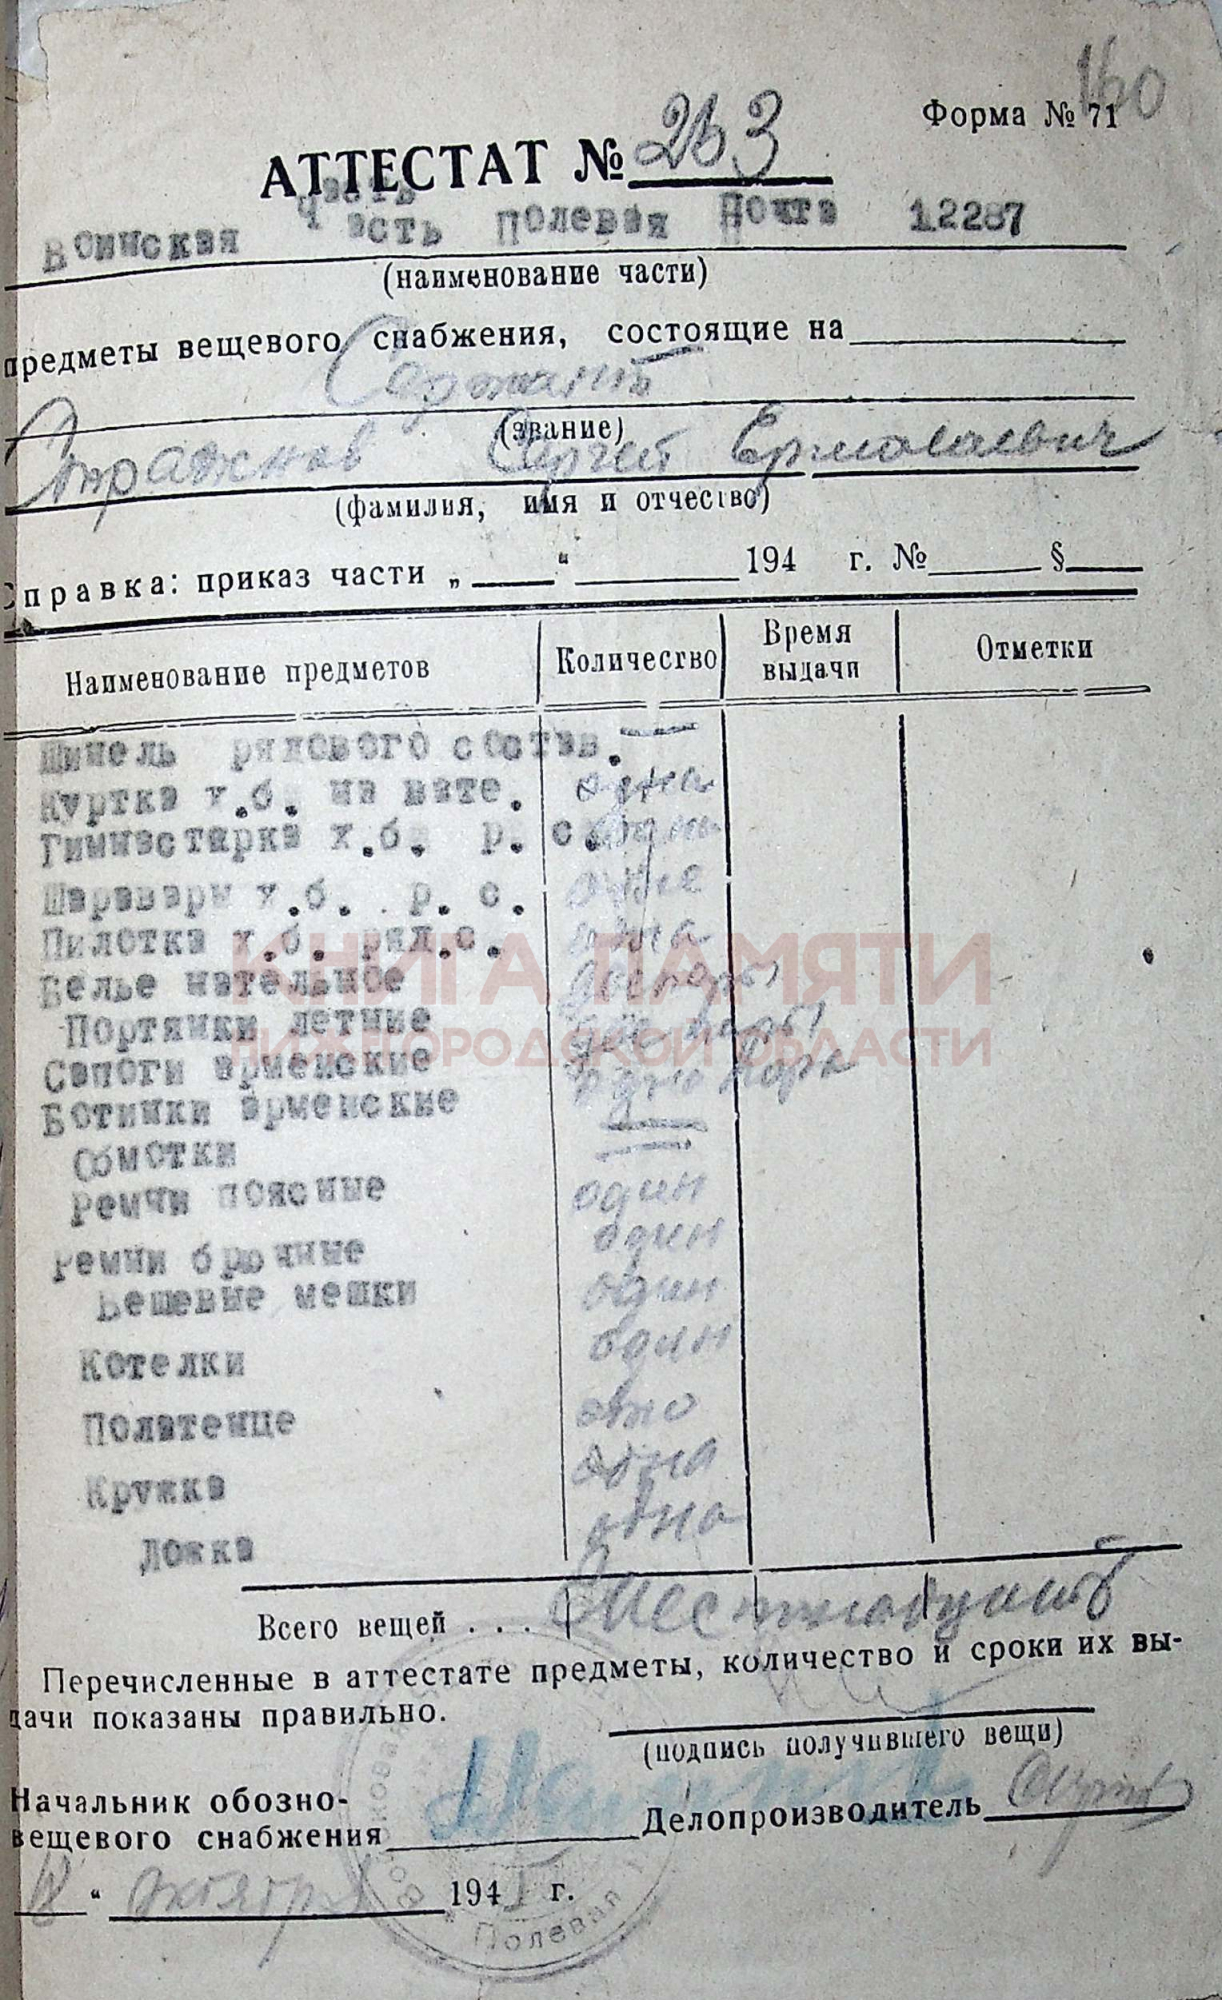 160
Форма № 71
АТТЕСТАТ № 253
часть
Воинская Часть Полевая Почта 12287
(наименование части)
предметы вещевого снабжения, состоящие на
Сержант
(звание)
Стражнов Сергей Ермолаевич
(фамилия, имя и отчество)
Справка: приказ части „ “ 194 г. № §
Наименование предметов Количество Время выдачи Отметки
Шинель рядового состав. —
Куртка х.б. на вате. одна
Гимнастерка х.б. р. с. одна
Шаравары х.б. р. с. одне
Пилотка х.б. ряд.с. одна
Белье нательное две пары
Портянки летние две пары
Сапоги армейские одно пара
Ботинки армейские =
Обмотки —
Ремни поясные один
Ремни брючные один
Вещевые мешки один
Котелки один
Полатенце одно
Кружка одна
Ложка одна
Всего вещей . . . Шестнадцать
Перечисленные в аттестате предметы, количество и сроки их вы-
дачи показаны правильно.
(подпись получившего вещи)
Начальник обозно-
вещевого снабжения Делопроизводитель
18 “ октября 194 г.
Полевая
КНИГА ПАМЯТИ
НИЖЕГОРОДСКОЙ ОБЛАСТИ